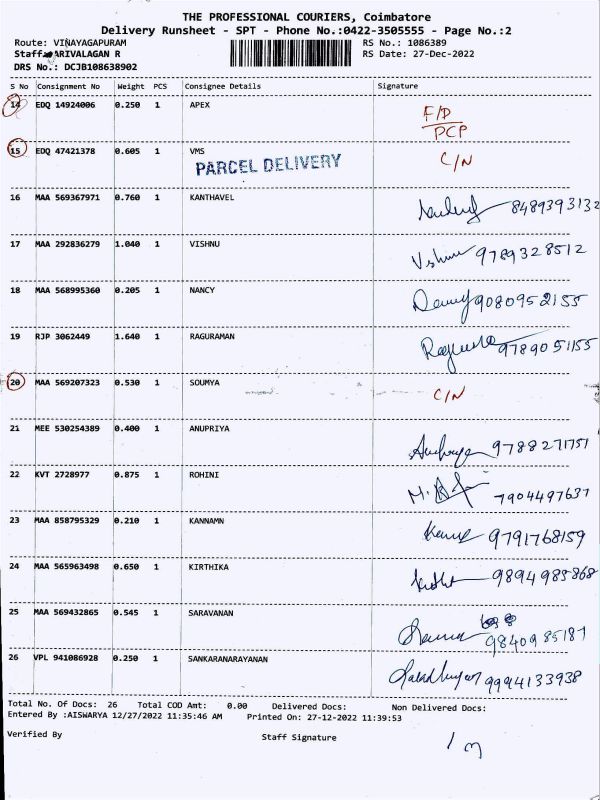 THE PROFESSIONAL COURIERS, Coimbatore
Delivery Runsheet - SPT - Phone No.:0422-3505555 - Page No.:2
Route: VINAYAGAPURAM RS No.: 1086389
Staff: ARIVALAGAN R RS Date: 27-Dec-2022
DRS No.: DCJB108638902
S No Consignment No Weight PCS Consignee Details Signature
14 EDQ 14924006 0.250 1 APEX F/D
PCP
15 EDQ 47421378 0.605 1 VMS C/N
PARCEL DELIVERY
16 MAA 569367971 0.760 1 KANTHAVEL 8489393132
17 MAA 292836279 1.040 1 VISHNU Vishnu 9789328512
18 MAA 568995360 0.205 1 NANCY 9080952155
19 RJP 3062449 1.640 1 RAGURAMAN 9789051155
20 MAA 569207323 0.530 1 SOUMYA C/N
21 MEE 530254389 0.400 1 ANUPRIYA 9788271751
22 KVT 2728977 0.875 1 ROHINI 7904497637
23 MAA 858795329 0.210 1 KANNAMN 9791768159
24 MAA 565963498 0.650 1 KIRTHIKA 9894985868
25 MAA 569432865 0.545 1 SARAVANAN 9840985187
26 VPL 941086928 0.250 1 SANKARANARAYANAN 9994133938
Total No. Of Docs: 26 Total COD Amt: 0.00 Delivered Docs: Non Delivered Docs:
Entered By :AISWARYA 12/27/2022 11:35:46 AM Printed On: 27-12-2022 11:39:53
Verified By Staff Signature